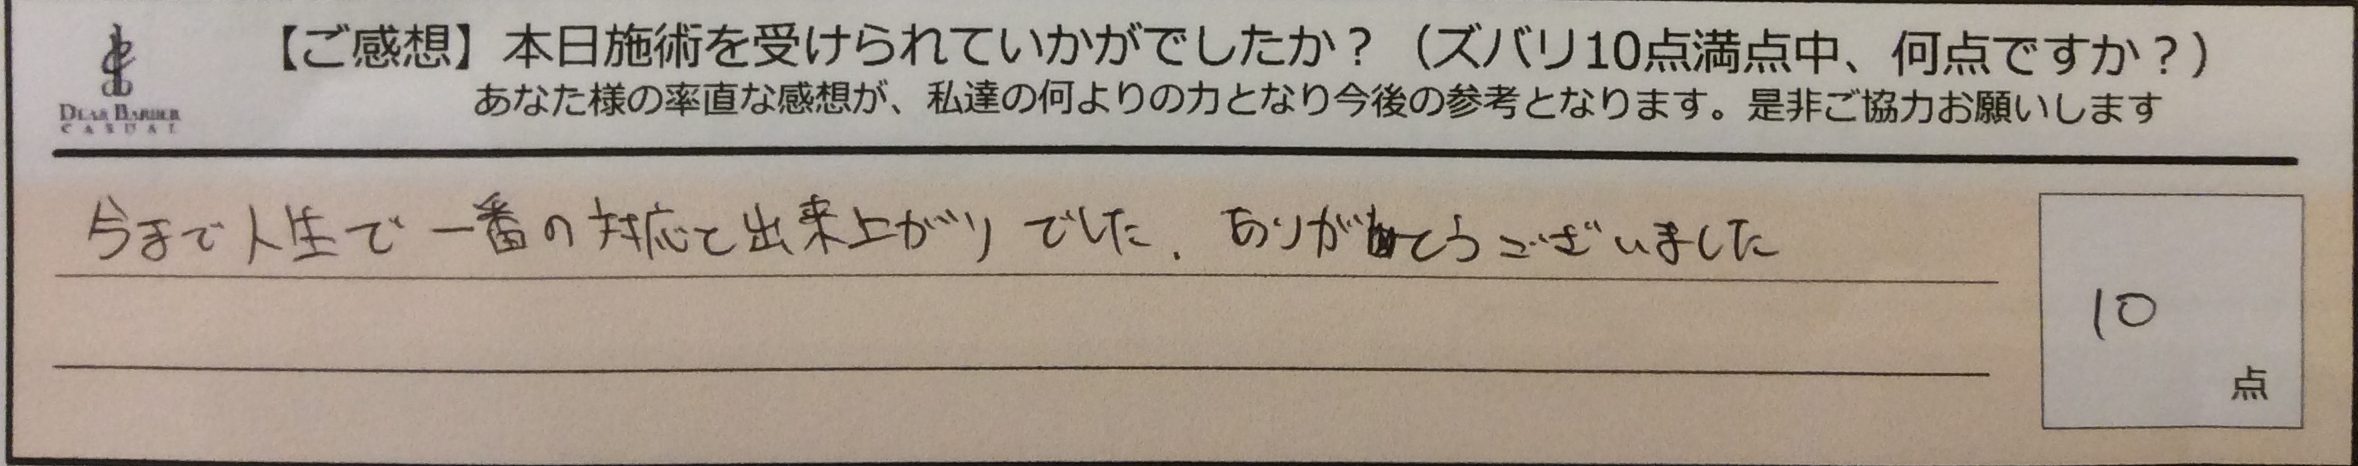 DEAR BARBER
CASUAL
【ご感想】本日施術を受けられていかがでしたか？（ズバリ10点満点中、何点ですか？）
あなた様の率直な感想が、私達の何よりの力となり今後の参考となります。是非ご協力お願いします
今まで人生で一番の対応と出来上がりでした. ありがとうございました
10
点